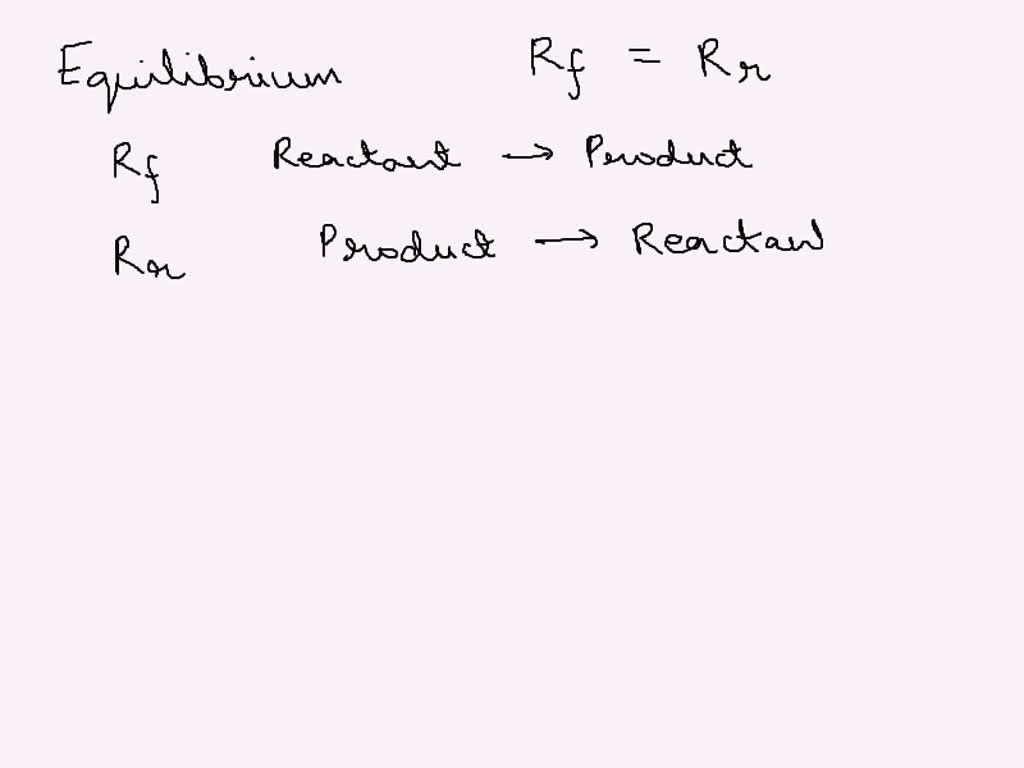 Equilibrium R_f = R_r
R_f Reactant → Product
R_r Product → Reactant